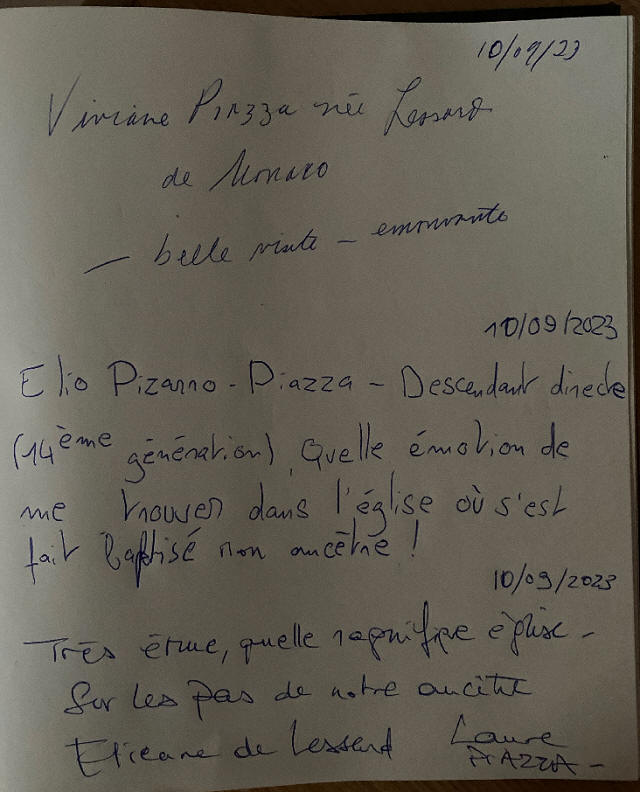 10/09/23
Viviane Piazza née Lessard
de Monaco
— belle visite - émouvante
10/09/2023
Elio Pizarro - Piazza - Descendant directe
(14ème génération), Quelle émotion de
me trouver dans l'église où s'est
fait baptisé mon ancêtre !
10/09/2023
Très émue, quelle magnifique église -
Sur les pas de notre ancêtre
Etienne de Lessard Laure
PIAZZA -